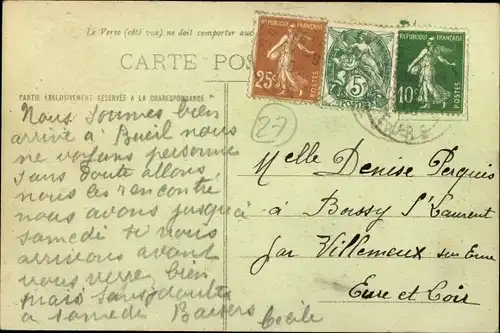 Le Verso (côté vue) ne doit comporter auc
CARTE POS
RÉPUBLIQUE FRANÇAISE
25c
POSTES
5c
POSTES
RÉPUBLIQUE FRANÇAISE
10c
POSTES
PARTIE EXCLUSIVEMENT RÉSERVÉE A LA CORRESPONDANCE
27
Nous sommes bien
arrivé à Bueil nous
ne voyons personne
sans doute allons
nous les rencontré
nous avons jusqu'à
samedi si vous
arrivons avant
vous verre bien
mais sans doute
à samedi Baisers
Cécile
Melle Denise
à Boissy St Laurent
par Villemeux sur Eure
Eure et Loir